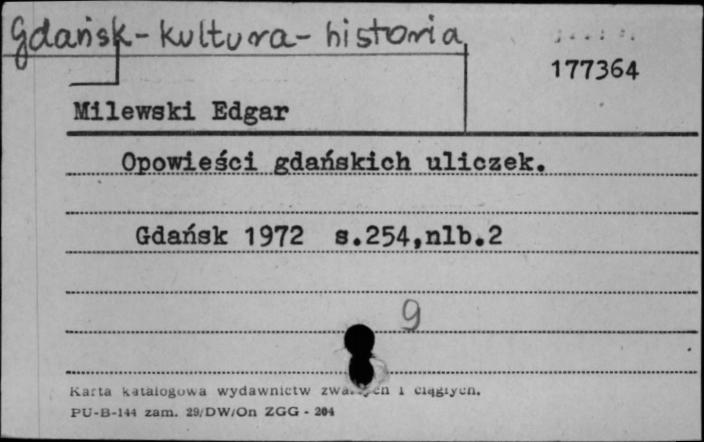 Gdańsk - kultura - historia
177364
Milewski Edgar
Opowieści gdańskich uliczek.
Gdańsk 1972 s.254,nlb.2
9
Karta katalogowa wydawnictw i ciągłych.
PU-B-144 zam. 29/DW/On ZGG - 204